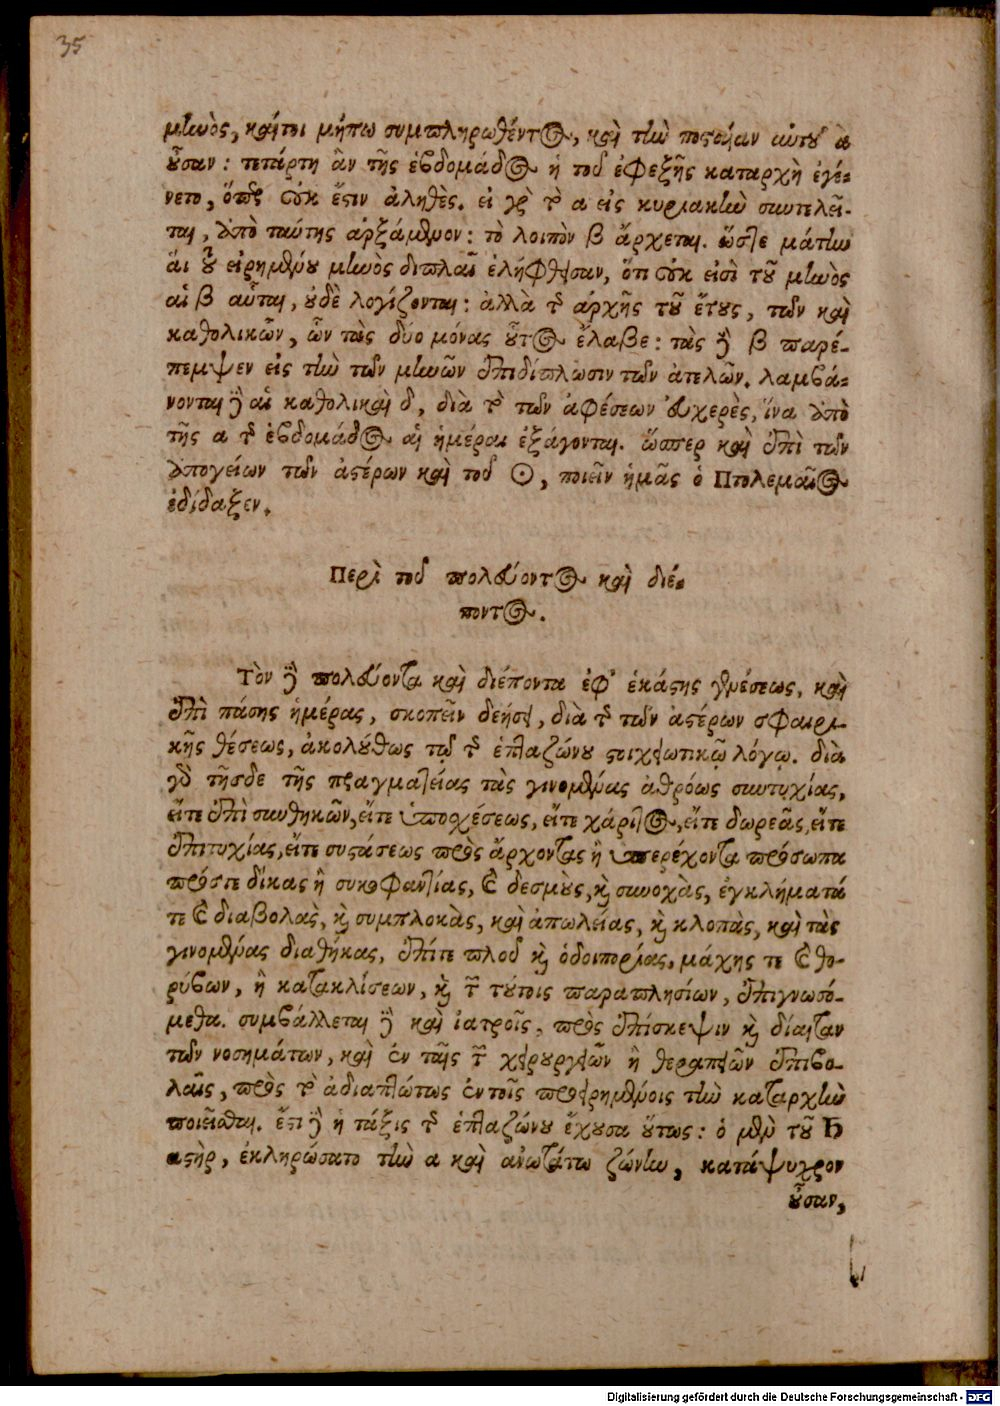 35
μηνὸς, καίτοι μήπω συμπληρωθέντος, καὶ τὴν ποστίαν αὐτοῦ
οὖσαν: τετάρτη ἂν τῆς ἑβδομάδος ἡ τοῦ ἐφεξῆς καταρχὴ ἐγέ-
νετο, ὅπερ οὐκ ἔστιν ἀληθὲς. εἰ γὰρ τὸ α εἰς κυριακὴν συντελεῖ-
ται, ἀπὸ ταύτης ἀρξάμενον: τὸ λοιπὸν β ἄρχεται. ὥστε μάτην
αἱ τοῦ εἰρημένου μηνὸς διπλαῖ ἐλήφθησαν, ὅτι οὐκ εἰσὶ τοῦ μηνὸς
αἱ β αὗται, οὐδὲ λογίζονται: ἀλλὰ τῆς ἀρχῆς τοῦ ἔτους, τῶν καὶ
καθολικῶν, ὧν τὰς δύο μόνας οὗτος ἔλαβε: τὰς δὲ β παρέ-
πεμψεν εἰς τὴν τῶν μηνῶν ἐπιδίπλωσιν τῶν ἀτελῶν. λαμβά-
νονται δὲ αἱ καθολικαὶ δ, διὰ τὸ τῶν ἀφέσεων εὐχερὲς, ἵνα ἀπὸ
τῆς α τῆς ἑβδομάδος αἱ ἡμέραι ἐξάγονται. ὥσπερ καὶ ἐπὶ τῶν
ἀπογείων τῶν ἀστέρων καὶ τοῦ ☉, ποιεῖν ἡμᾶς ὁ Πτολεμαῖος
ἐδίδαξεν.
Περὶ τοῦ πολεύοντος καὶ διέ-
ποντος.
Τὸν δὲ πολεύοντα καὶ διέποντα ἐφ' ἑκάστης γενέσεως, καὶ
ἐπὶ πάσης ἡμέρας, σκοπεῖν δεήσει, διὰ τῆς τῶν ἀστέρων σφαιρι-
κῆς θέσεως, ἀκολούθως τῷ τῆς ἑπταζώνου στοιχειωτικῷ λόγῳ. διὰ
γὰρ τῆσδε τῆς πραγματείας τὰς γινομένας ἀθρόως συντυχίας,
εἴτε ἐπὶ συνθηκῶν, εἴτε ὑποσχέσεως, εἴτε χάριτος, εἴτε δωρεᾶς, εἴτε
ἐπιτυχίας, εἴτε συστάσεως πρὸς ἄρχοντας ἢ ὑπερέχοντα πρόσωπα
πρόστε δίκας ἢ συκοφαντίας, καὶ δεσμοὺς, καὶ συνοχὰς, ἐγκλήματά
τε καὶ διαβολὰς, καὶ συμπλοκὰς, καὶ ἀπωλείας, καὶ κλοπὰς, καὶ τὰς
γινομένας διαθήκας, ἐπίτε πλοῦ καὶ ὁδοιπορίας, μάχης τε καὶ θο-
ρύβων, ἢ κατακλίσεων, καὶ τῶν τούτοις παραπλησίων, ἐπιγνωσό-
μεθα. συμβάλλεται δὲ καὶ ἰατροῖς, πρὸς ἐπίσκεψιν καὶ δίαιταν
τῶν νοσημάτων, καὶ ἐν ταῖς τῶν χειρουργειῶν ἢ θεραπειῶν ἐπιβο-
λαῖς, πρὸς τὸ ἀδιαπτώτως ἐν τοῖς προειρημένοις τὴν καταρχὴν
ποιεῖσθαι. ἔστι δὲ ἡ τάξις τῆς ἑπταζώνου ἔχουσα οὕτως: ὁ μὲν τοῦ ♄
ἀστὴρ, ἐκληρώσατο τὴν α καὶ ἀνωτάτω ζώνην, κατάψυχρον
οὖσαν,
Digitalisierung gefördert durch die Deutsche Forschungsgemeinschaft - DFG